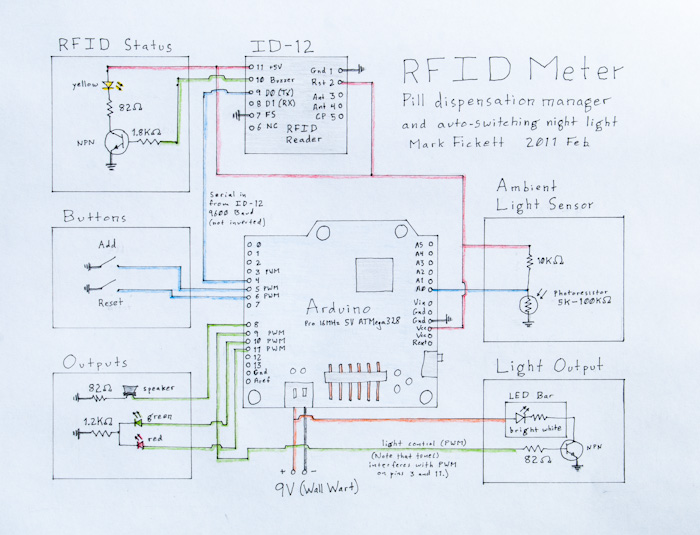 RFID Meter
Pill dispensation manager
and auto-switching night light
Mark Fickett 2011 Feb
RFID Status
yellow
82Ω
NPN
1.8KΩ
ID-12
11 +5V
10 Buzzer
9 D0 (TX)
8 D1 (RX)
7 FS
6 NC
Gnd 1
Rst 2
Ant 3
Ant 4
CP 5
RFID
Reader
Serial in
from ID-12
9600 Baud
(not inverted)
Buttons
Add
Reset
Ambient
Light Sensor
10KΩ
Photoresistor
5K-100KΩ
0
1
2
3 PWM
4
5 PWM
6 PWM
7
8
9 PWM
10 PWM
11 PWM
12
13
Gnd
Aref
A5
A4
A3
A2
A1
A0
Vin
Gnd
Gnd
Vcc
Vcc
Reset
Arduino
Pro 16MHz 5V ATMega328
Outputs
82Ω
speaker
green
1.2KΩ
red
Light Output
LED Bar
bright white
NPN
82Ω
light control (PWM)
(Note that tone()
interferes with PWM
on pins 3 and 11.)
+ -
9V (Wall Wart)